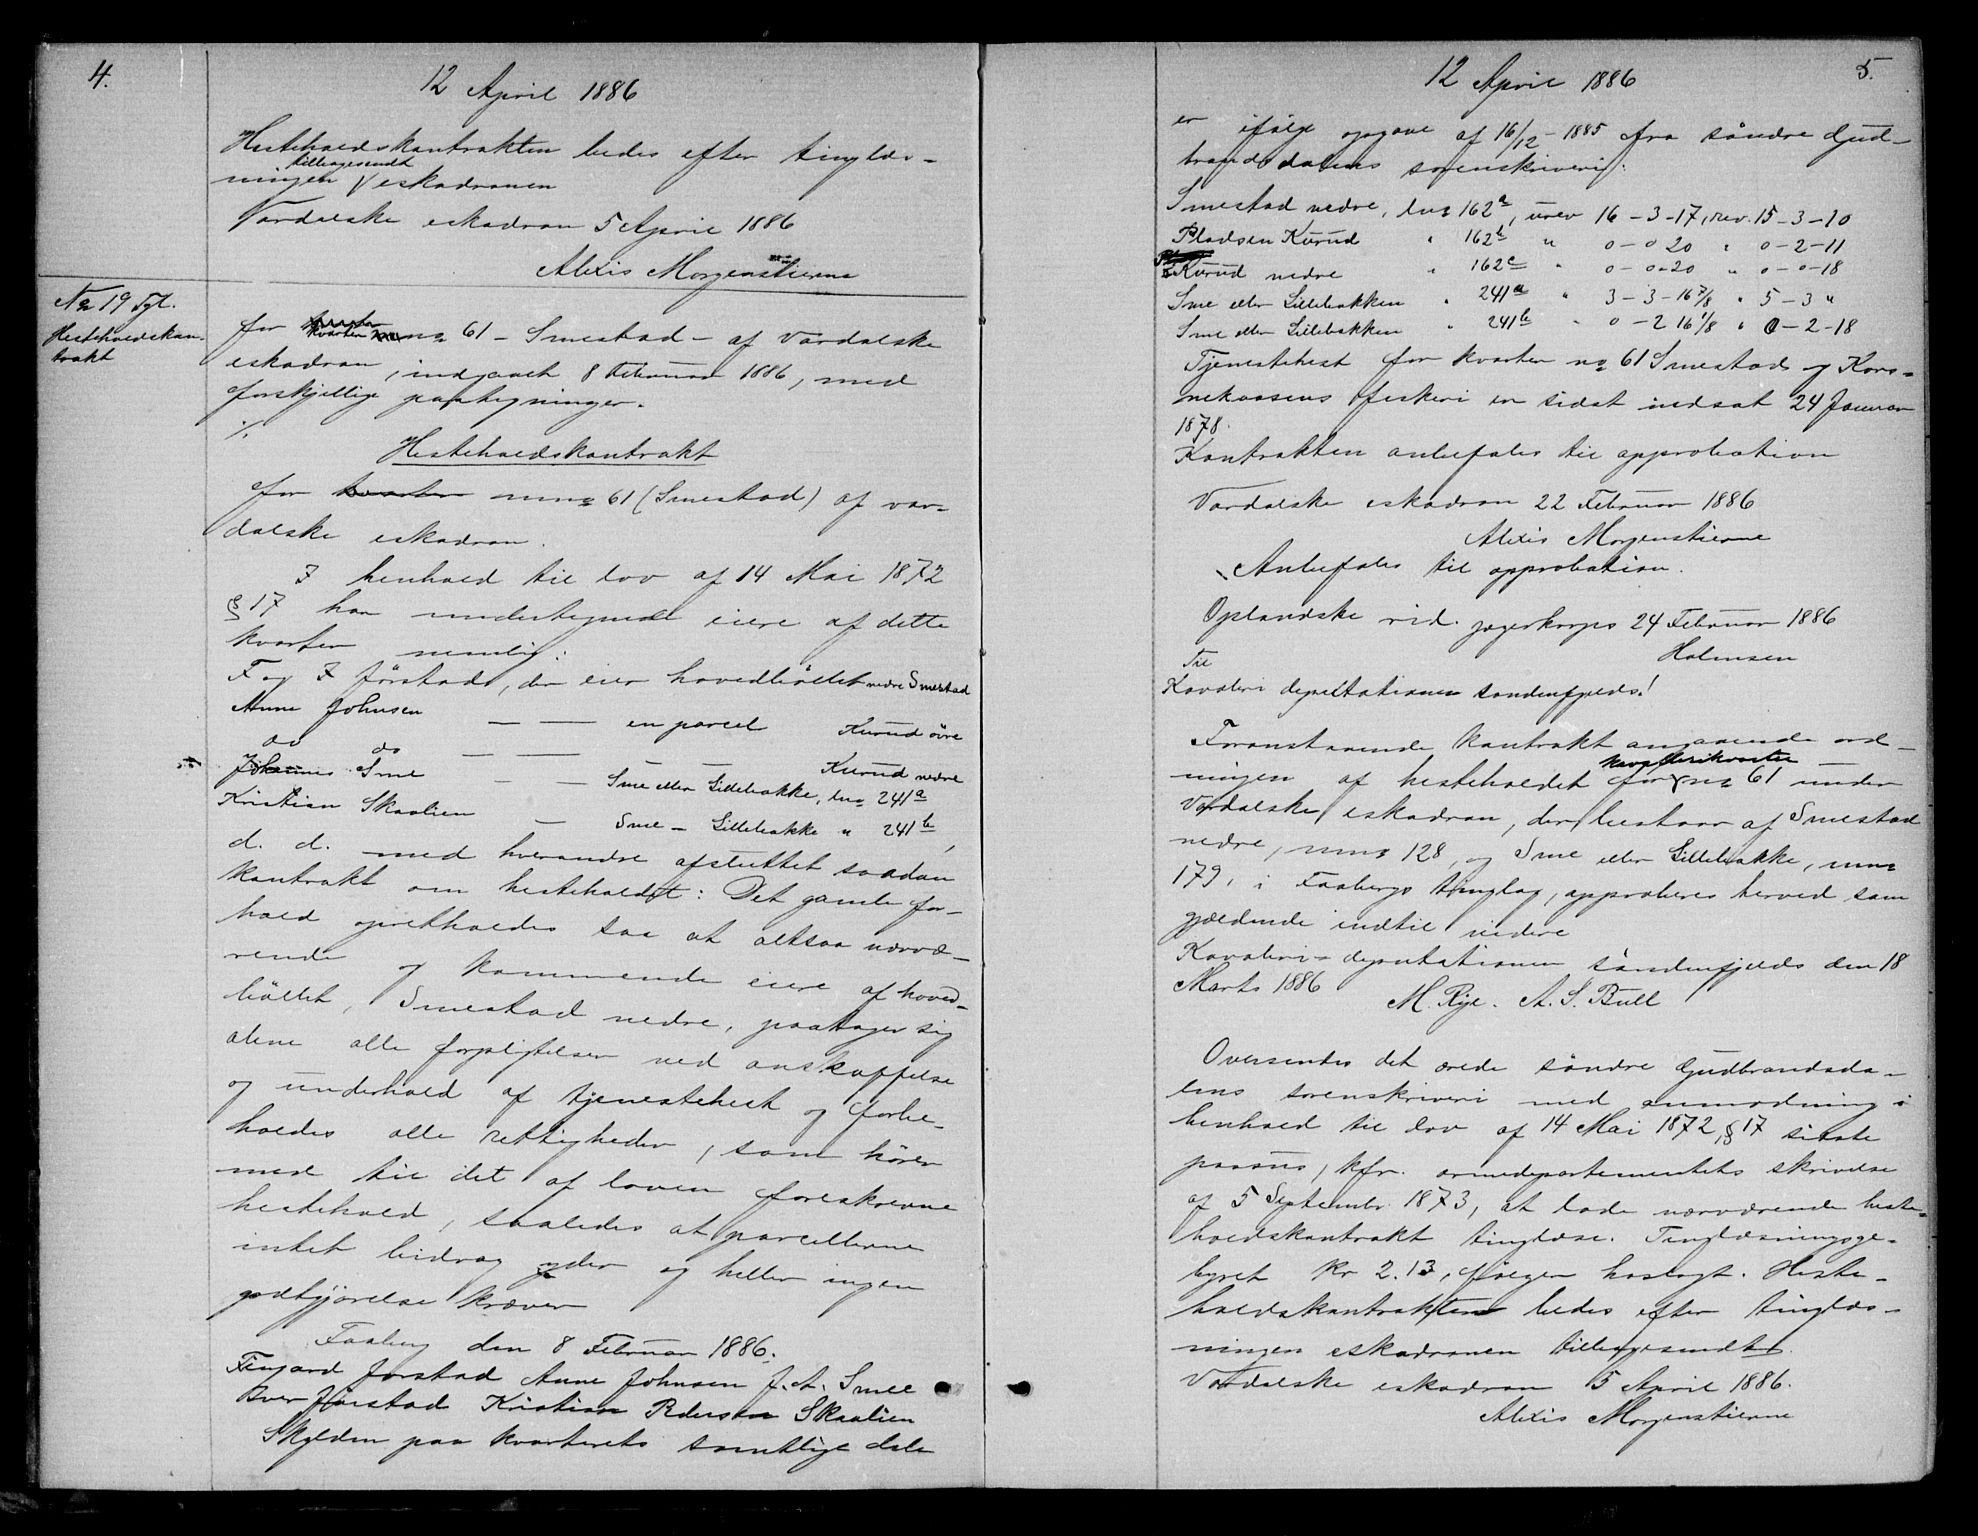 4.
12 April 1886
Hesteholdskontrakten bedes efter tinglæs-
ningen tilbagesendt eskadronen
Vardalske eskadron 5 April 1886
Alexis Morgenstierne
No 19 Tgl.
Hesteholdskon-
trakt
for kvarter no 61 - Smestad - af Vardalske
eskadron, indgaaet 8 Februar 1886, med
forskjellige paategninger.
./.
Hesteholdskontrakt
for kvarter num 61 (Smestad) af var-
dalske eskadron.
I henhold til lov af 14 Mai 1872
§ 17 har undertegnede eiere af dette
kvarter nemlig:
F og I Jørstad, der eier hovedbølet nedre Smestad
Anne Johnsen — — en parcel Kurud øvre
do do — — — — Kurud nedre
Johannes Sme — — Sme eller Lillebakke, lno 241a
Kristian Skaalien — Sme — Lillebakke " 241b,
d. d. med hverandre afsluttet saadan
kontrakt om hesteholdet: Det gamle for-
hold opretholdes saa at altsaa nærvæ-
rende og kommende eiere af hoved-
bølet, Smestad nedre, paatager sig
alene alle forpligtelser ved anskaffelse
og underhold af tjenestehest og forbe-
holdes alle rettigheder, som hører
med til det af loven foreskrevne
hestehold, saaledes at parcellerne
intet bidrag yder og heller ingen
godtgjørelse kræver
Faaberg den 8 Februar 1886.
Fingard Jørstad Anne Johnsen J. A. Smee
Iver Jørstad Kristian Pedersen Skaalien
Skylden paa kvarterets samtlige dele
12 April 1886
5.
er ifølge opgave af 16/12 - 1885 fra søndre Gud-
brandsdalens sorenskriveri:
Smestad nedre, lno 162a, urev 16-3-17, rev. 15-3-10
Pladsen Kurud " 162b " 0-0 20 " 0-2-11
Kurud nedre " 162c " 0-0-20 " 0-0-18
Sme eller Lillebakken " 241a " 3-3-16 7/8 " 5-3 "
Sme eller Lillebakken " 241b " 0-2 16 1/8 " 0-2-18
Tjenestehest for kvarter no 61 Smestad og Kors-
nekaasens fiskeri er sidst indsat 24 Januar
1878.
Kontrakten anbefales til approbation
Vardalske eskadron 22 Februar 1886
Alexis Morgenstierne
Anbefales til approbation.
Oplandske rid. jægerkorps 24 Februar 1886
Holmsen
Til
Kavaleri deputationen søndenfjelds!
Foranstaaende kontrakt angaaende ord-
ningen af hesteholdet for kavallerikvarter no 61 under
Vardalske eskadron, der bestaar af Smestad
nedre, mno 128, og Sme eller Lillebakke, mno
179, i Faabergs tinglag, approberes herved som
gjældende indtil videre
Kavaleri-deputationen søndenfjelds den 18
Marts 1886
M. Rye. A. S. Bull
Oversendes det ærede søndre Gudbrandsda-
lens sorenskriveri med anmodning i
henhold til lov af 14 Mai 1872, § 17 sidste
passus, kfr. armedepartementets skrivelse
af 5 Septembr. 1873, at lade nærværende heste-
holdskontrakt tinglæse. Tinglæsningsge-
byret kr 2.13, følger hoslagt. Heste-
holdskontrakten bedes efter tinglæs-
ningen eskadronen tilbagesendt.
Vardalske eskadron 5 April 1886.
Alexis Morgenstierne